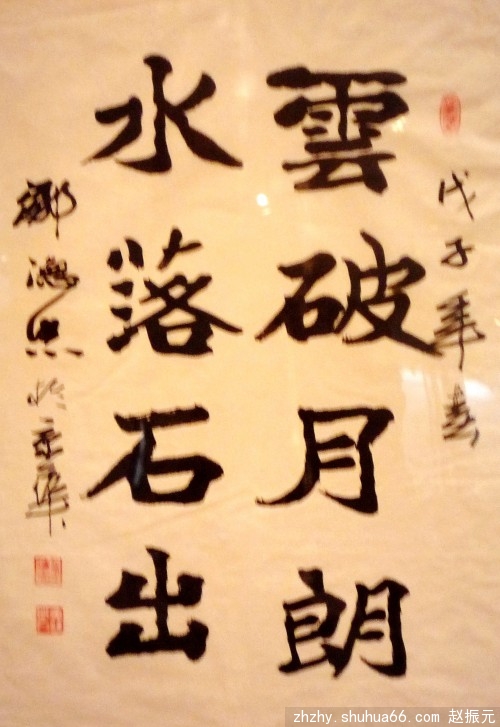 戊子年春
雲破月朗
水落石出
鄒德忠於京華
zhzhy.shuhua66.com 赵振元